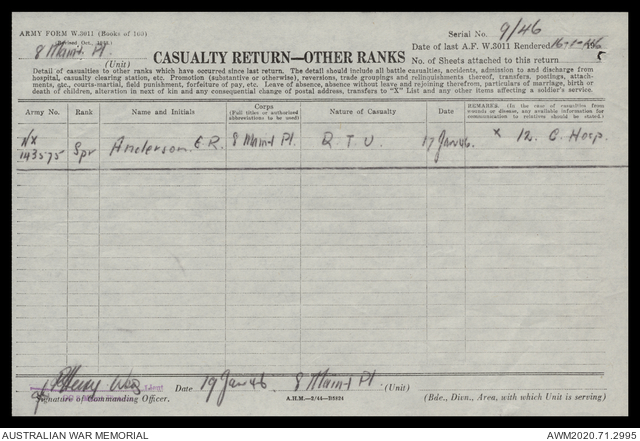 ARMY FORM W.3011 (Books of 100)
(Revised Oct., 1942.)
8 Maint Pl.
(Unit)
CASUALTY RETURN—OTHER RANKS
Serial No. 9/46
Date of last A.F. W.3011 Rendered 16-1-46
No. of Sheets attached to this return
Detail of casualties to other ranks which have occurred since last return. The detail should include all battle casualties, accidents, admission to and discharge from
hospital, casualty clearing station, etc. Promotion (substantive or otherwise), reversions, trade groupings and relinquishments thereof, transfers, postings, attach-
ments, etc., courts-martial, field punishment, forfeiture of pay, etc. Leave of absence, absence without leave and rejoining therefrom, particulars of marriage, birth or
death of children, alteration in next of kin and any consequential change of postal address, transfers to "X" List and any other items affecting a soldier's service.
Army No. Rank Name and Initials Corps (Full titles or authorized abbreviations to be used) Nature of Casualty Date REMARKS. (In the case of casualties from wounds or disease, any available information for communication to relatives should be stated.)
NX 143575 Spr Anderson E R. 8 Maint Pl. R T U. 17 Jan 46. x 12. C. Hosp.
Lieut
Signature of Commanding Officer. Date 19 Jan 46. 8 Maint Pl (Unit)
A.H.M.—2/44—B1824
(Bde., Divn., Area, with which Unit is serving)
AUSTRALIAN WAR MEMORIAL
AWM2020.71.2995